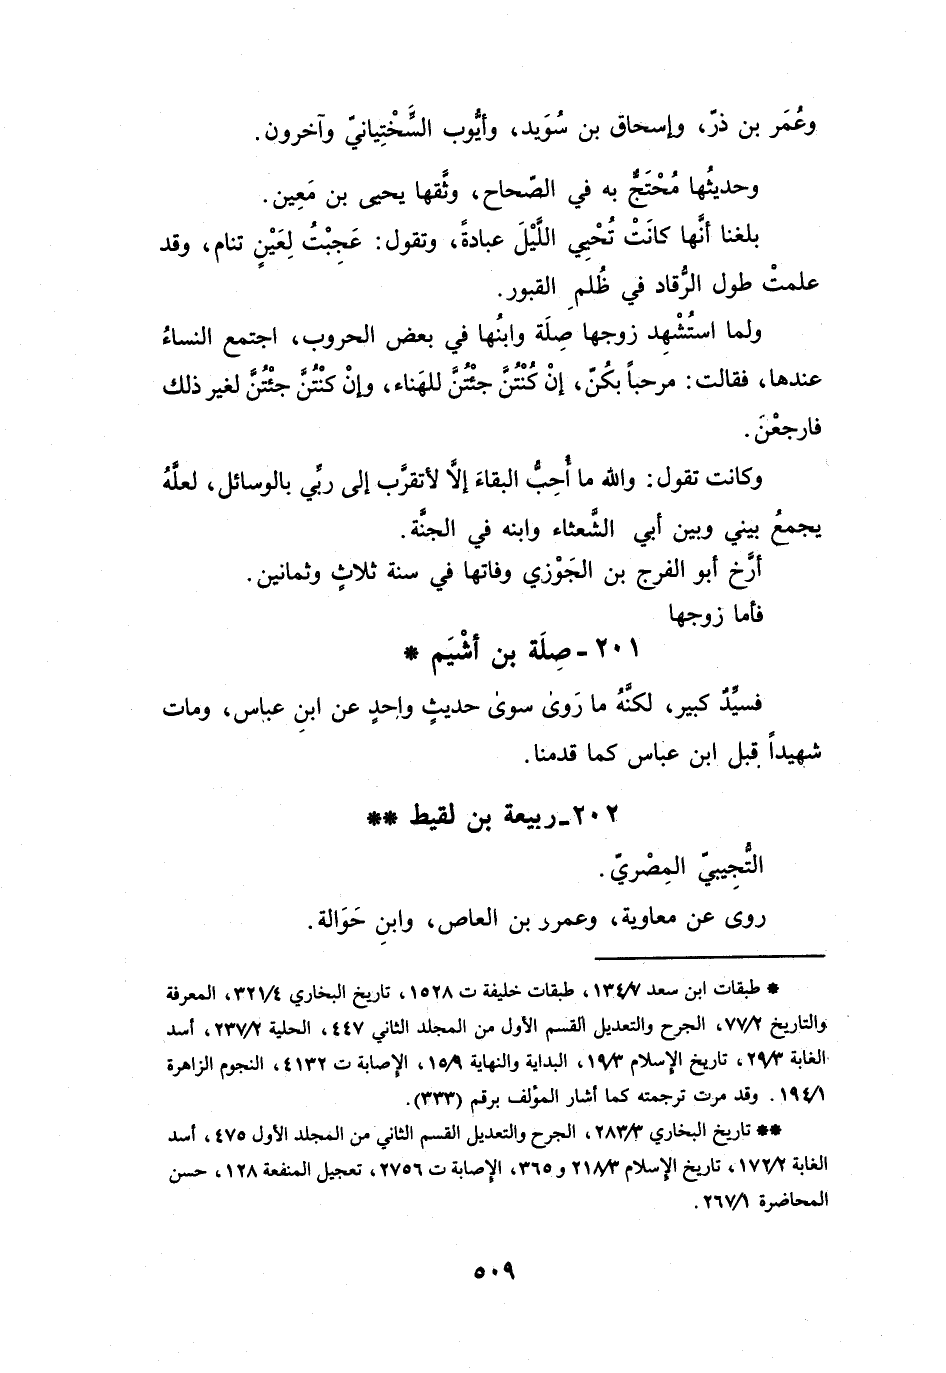 وعُمَر بن ذرّ، وإسحاق بن سُوَيد، وأيُّوب السَّخْتِيانيّ وآخرون.
وحديثُها مُحْتَجٌّ به في الصّحاح، وثَّقها يحيى بن مَعِين.
بلغنا أنَّها كانَتْ تُحْيِي اللَّيْلَ عبادةً، وتقول: عَجِبْتُ لِعَيْنٍ تنام، وقد
علمتْ طول الرُّقاد في ظُلم القبور.
ولما استُشْهِد زوجها صِلَة وابنُها في بعض الحروب، اجتمع النساءُ
عندها، فقالت: مرحباً بكُنّ، إنْ كُنْتُنَّ جئْتُنَّ للهَناء، وإنْ كنْتُنَّ جئْتُنَّ لغير ذلك
فارجعْنَ.
وكانت تقول: والله ما أُحِبُّ البقاءَ إلَّا لأتقرَّب إلى ربِّي بالوسائل، لعلَّهُ
يجمعُ بيني وبين أبي الشَّعثاء وابنه في الجنَّة.
أرَّخ أبو الفرج بن الجَوْزي وفاتها في سنة ثلاثٍ وثمانين.
فأما زوجها
٢٠١ - صِلَة بن أشْيَم *
فسيِّدٌ كبير، لكنَّهُ ما رَوىٰ سوىٰ حديثٍ واحدٍ عن ابنِ عباس، ومات
شهيداً قبل ابن عباس كما قدمنا.
٢٠٢ ـ ربيعة بن لقيط **
التُّجِيبيّ المِصْريّ.
روى عن معاوية، وعمرر بن العاص، وابنِ حَوَالة.
* طبقات ابن سعد ١٣٤/٧، طبقات خليفة ت ١٥٢٨، تاريخ البخاري ٣٢١/٤، المعرفة
والتاريخ ٧٧/٢، الجرح والتعديل القسم الأول من المجلد الثاني ٤٤٧، الحلية ٢٣٧/٢، أسد
الغابة ٢٩/٣، تاريخ الإسلام ١٩/٣، البداية والنهاية ١٥/٩، الإصابة ت ٤١٣٢، النجوم الزاهرة
١٩٤/١. وقد مرت ترجمته كما أشار المؤلف برقم (٣٣٣).
** تاريخ البخاري ٢٨٣/٣، الجرح والتعديل القسم الثاني من المجلد الأول ٤٧٥، أسد
الغابة ١٧٢/٢، تاريخ الإسلام ٢١٨/٣ و ٣٦٥، الإصابة ت ٢٧٥٦، تعجيل المنفعة ١٢٨، حسن
المحاضرة ٢٦٧/١.
٥٠٩